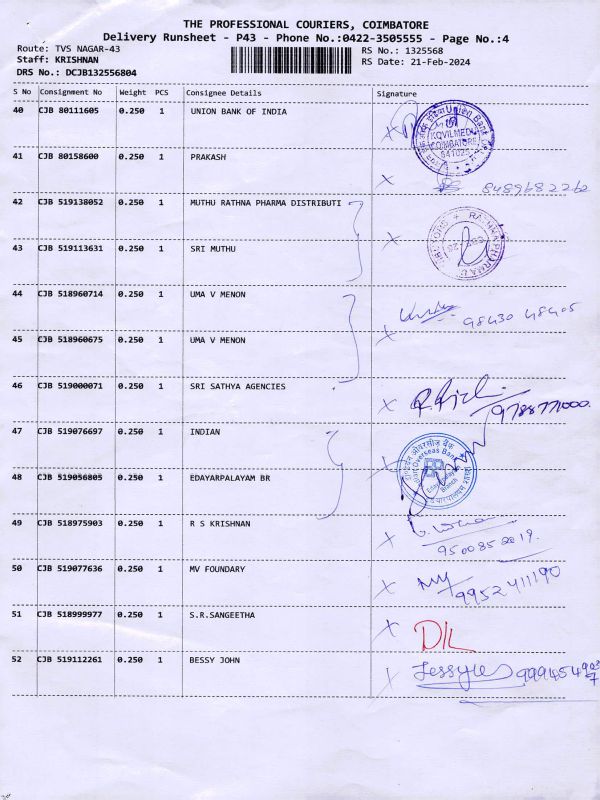 THE PROFESSIONAL COURIERS, COIMBATORE
Delivery Runsheet - P43 - Phone No.:0422-3505555 - Page No.:4
Route: TVS NAGAR-43
Staff: KRISHNAN
DRS No.: DCJB132556804
RS No.: 1325568
RS Date: 21-Feb-2024
S No Consignment No Weight PCS Consignee Details Signature
40 CJB 80111605 0.250 1 UNION BANK OF INDIA
Union Bank
KOVILMEDU
COIMBATORE
641025
41 CJB 80158600 0.250 1 PRAKASH
8489682262
42 CJB 519138052 0.250 1 MUTHU RATHNA PHARMA DISTRIBUTI
43 CJB 519113631 0.250 1 SRI MUTHU
44 CJB 518960714 0.250 1 UMA V MENON
98430 48405
45 CJB 518960675 0.250 1 UMA V MENON
46 CJB 519000071 0.250 1 SRI SATHYA AGENCIES
9788771000.
47 CJB 519076697 0.250 1 INDIAN
इण्डियन ओवरसीज़ बैंक
Overseas Bank
Branch
48 CJB 519056805 0.250 1 EDAYARPALAYAM BR
49 CJB 518975903 0.250 1 R S KRISHNAN
9500852019.
50 CJB 519077636 0.250 1 MV FOUNDARY
9952411190
51 CJB 518999977 0.250 1 S.R.SANGEETHA
D/L
52 CJB 519112261 0.250 1 BESSY JOHN